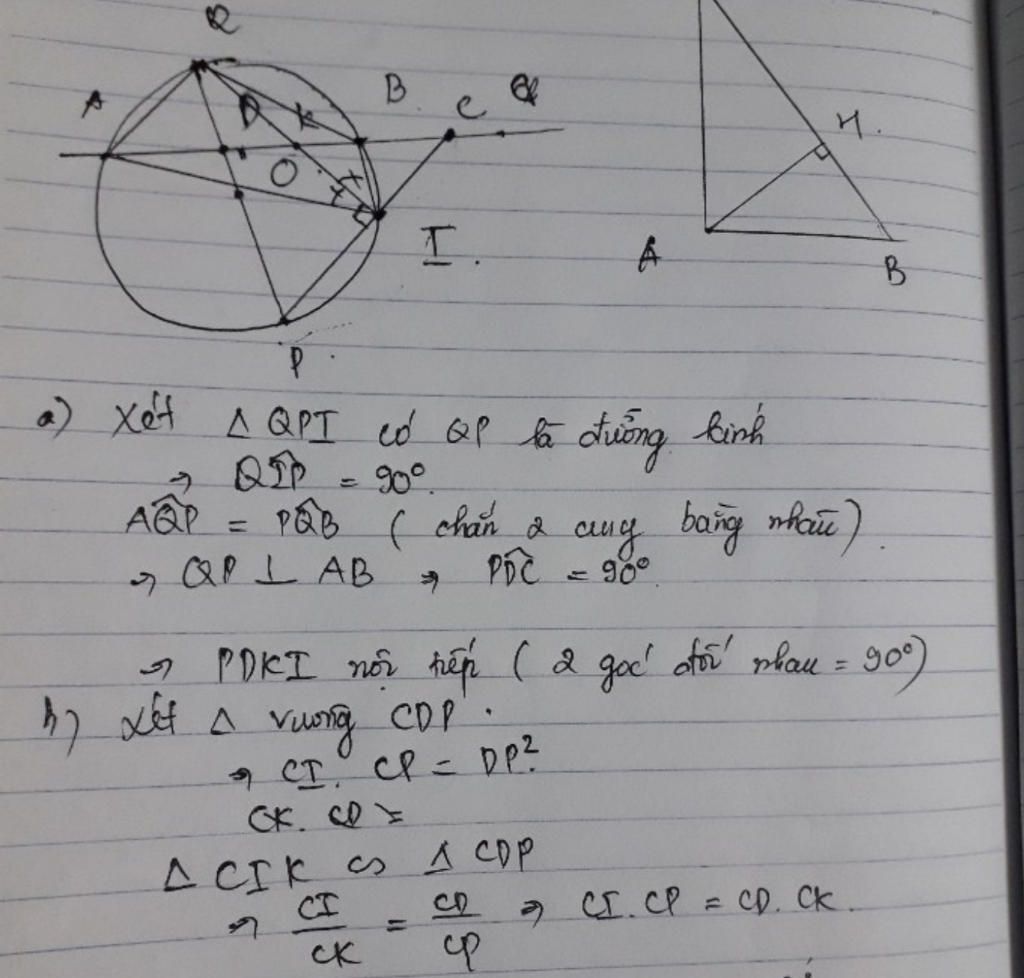 Q
A
D
K
B.
C
Q
O
I.
P.
H.
A
B
a) Xét Δ QPI có QP là đường kính
→ QÎP = 90°.
AQ̂P = PQ̂B (chắn 2 cung bằng nhau).
→ QP ⊥ AB → PD̂C = 90°.
→ PDKI nội tiếp (2 góc đối nhau = 90°)
b) Xét Δ vuông CDP.
→ CI. CP = DP².
CK. CD =
Δ CIK ∽ Δ CDP
→ CI/CK = CD/CP → CI.CP = CD.CK.